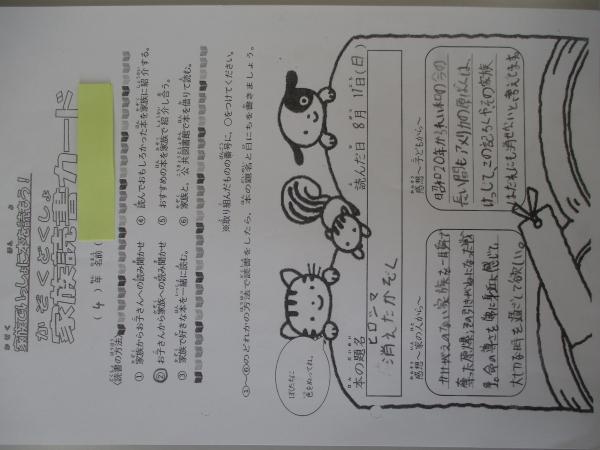 家族でいっしょに本を読もう!
かぞくどくしょ
家族読書カード
(4)年 名前(
〈読書の方法〉
① 家族からお子さんへの読み聞かせ
② お子さんから家族への読み聞かせ
③ 家族で好きな本を一緒に読む。
④ 読んでおもしろかった本を家族に紹介する。
⑤ おすすめの本を家族で紹介し合う。
⑥ 家族と、公共図書館で本を借りて読む。
※取り組んだものの番号に、○をつけてください。
①~⑥のどれかの方法で読書をしたら、本の題名と日にちを書きましょう。
ぼくたちに
色をぬってね。
本の題名
ヒロシマ
消えたかぞく
読んだ日 8月17日(日)
感想~子どもから~
昭和20年から令和の今の
長い間もアメリカの原ばくは、
けっして、この記ろくやその家族
はだれにも消せないと考えます。
感想~家の人から~
かけがえのない家族を一瞬で
奪った原爆。
命の尊さを 身近に感じて、
大切な時を過ごして欲しい。